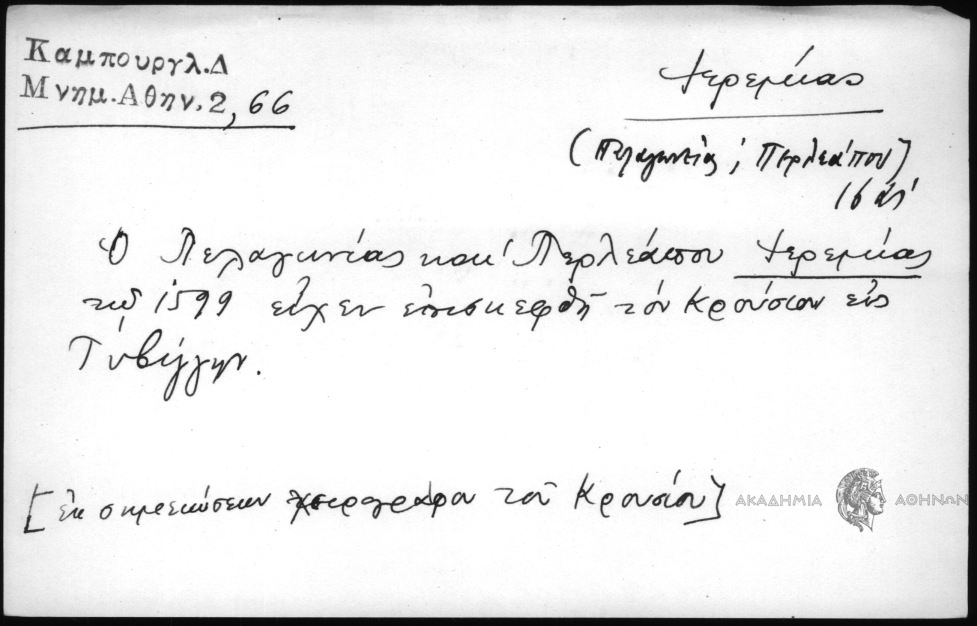 Καμπουργλ.Δ
Μνημ.Αθην.2, 66
Ἱερεμίας
(Πελαγωνίας ; Περλεάπου)
16
Ὁ Πελαγωνίας καί Περλεάπου Ἱερεμίας
τῷ 1599 εἶχεν ἐπισκεφθῆ τόν Κρούσιον εἰς
Τύβιγγην.
[ἐκ σημειώσεων χειρογράφου τοῦ Κρουσίου]
ΑΚΑΔΗΜΙΑ ΑΘΗΝΩΝ